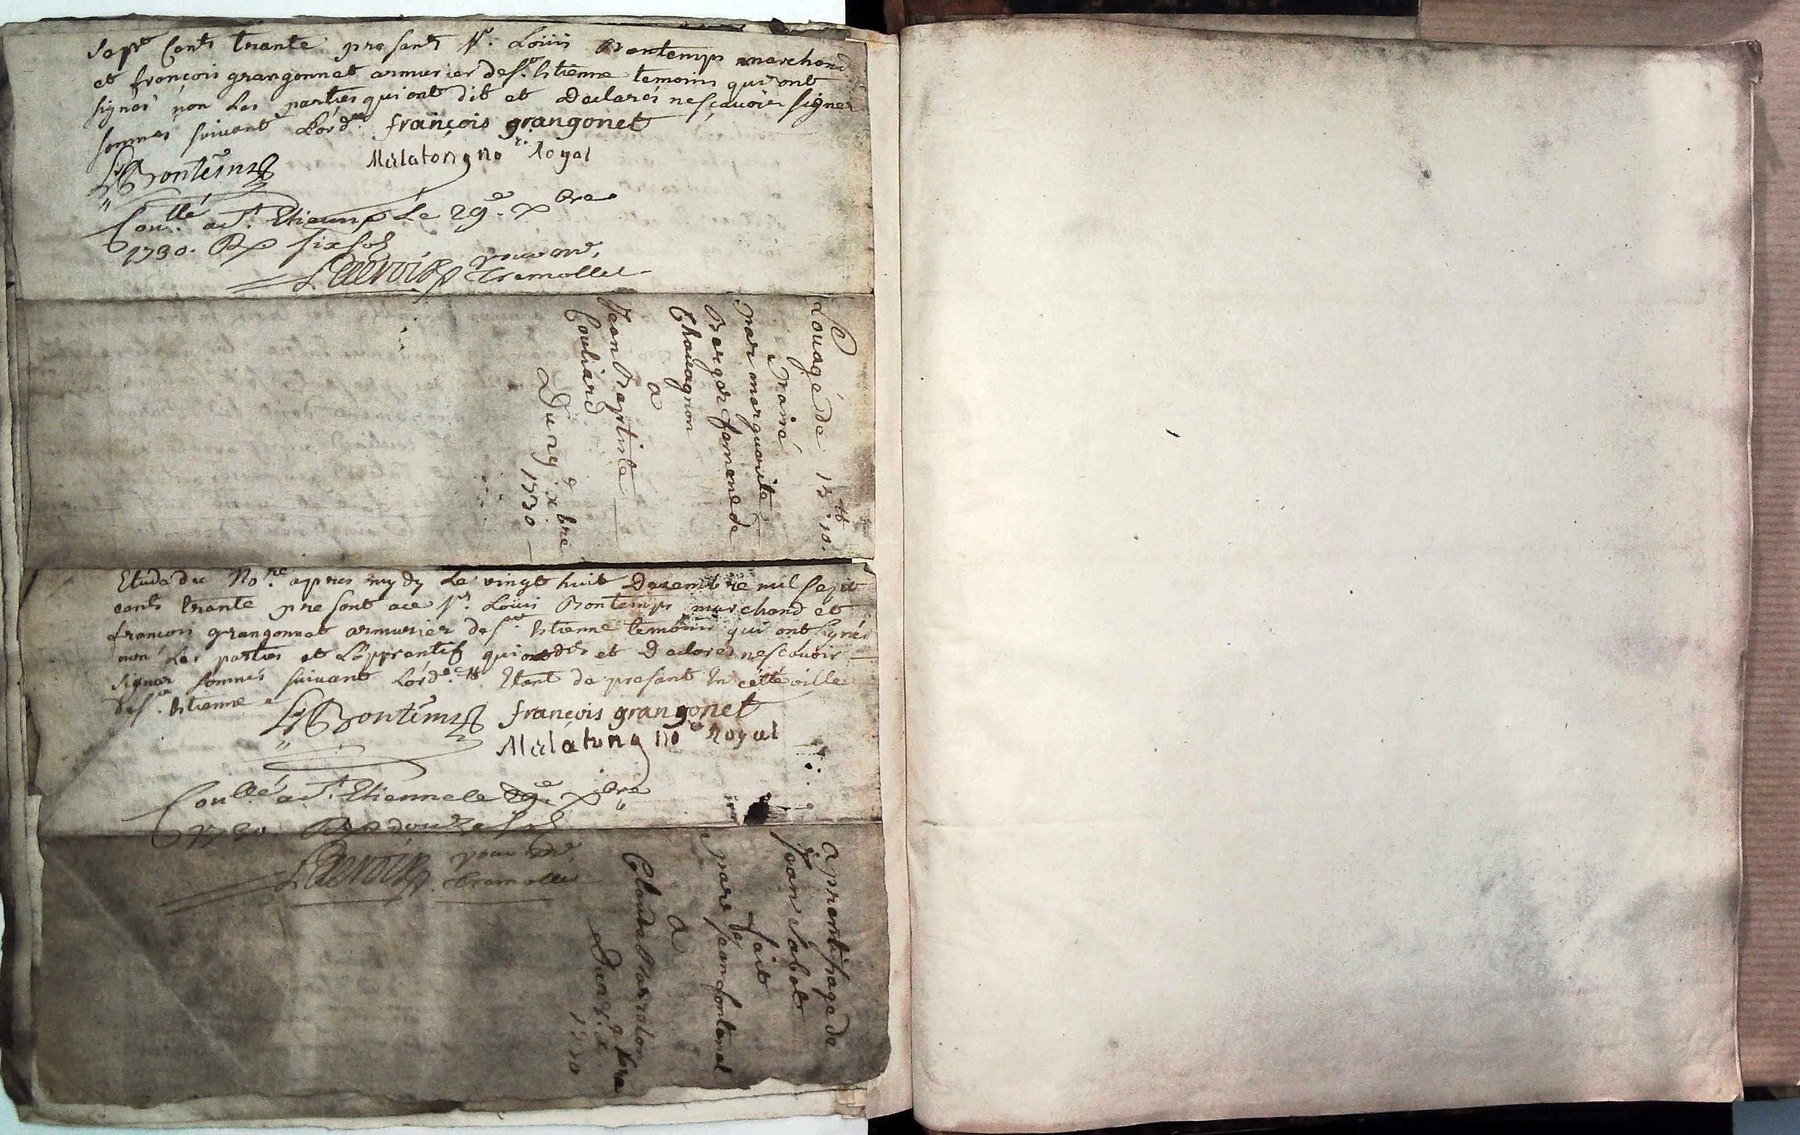 sept Cents trante presents Sr. Loüis Bontemps marchand
et françois grangonnet armurier de St. Etienne temoins qui ont
signés non Les parties qui ont dit et Declarés nesçavoir signer
sommes suivant Lord.ce françois grangonet
LsBontems Malatong no.re Royal
Con.llé a St. Etienne Le 29.e Xbre
1730. Rx six sols
pour mr.
Tremollet
Loüage de 15 tt 10.
par marguerite
Berger femme de
Chavagnon
a
Jean Baptiste
Couliard
Du 29 xbre
1730
Etude du No.re apres mydy Le vingt huit Decembre mil sept
cents trante presents ace Sr. Loüis Bontemps marchand et
françois grangonnet armurier de St. Etienne temoins qui ont signés
non Les parties et L'apprentif qui ont dit et Declarés nesçavoir
signer sommes suivant Lord.ce Etant de presant En cette ville
de St. Etienne
LsBontems françois grangonet
Malatong no.e Royal
Con.llé a St. Etienne le 29.e Xbre
1730 Rx douze sols
pour mr.
Tremollet
aprentisage de
Jean Sabot
fait
a
Claude
1730